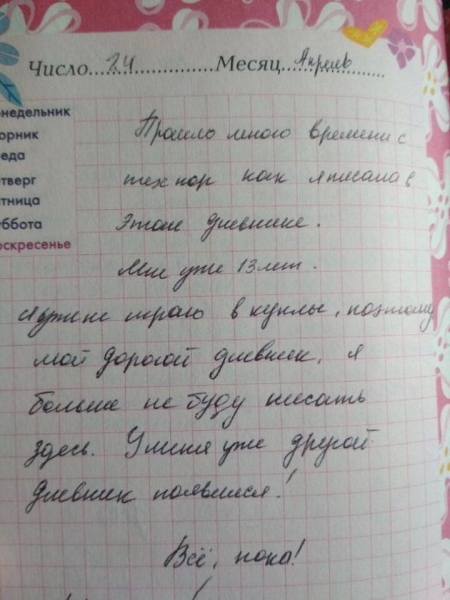 Число 24 Месяц Апрель
онедельник
орник
еда
етверг
тница
уббота
оскресенье
Прошло много времени с
тех пор как я писала в
этом дневнике.
Мне уже 13 лет.
я уже не играю в куклы, поэтому
мой дорогой дневник, я
больше не буду писать
здесь. У меня уже другой
дневник появился!
Всё, пока!